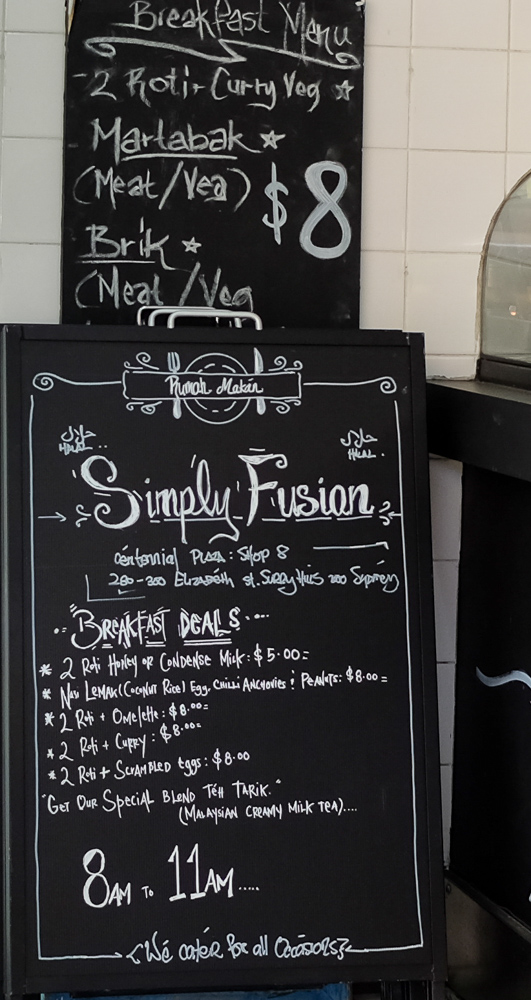 Breakfast Menu
2 Roti + Curry Veg
Martabak
(Meat/Veg)
$8
Brik
(Meat/Veg
Rumah Makan
حلال
HALAL
حلال
HALAL
Simply Fusion
Centennial Plaza: Shop 8
280-300 Elizabeth st. Surry Hills 200 Sydney
BREAKFAST DEALS
* 2 Roti Honey or Condense Milk: $5.00=
* Nasi Lemak (Coconut Rice) Egg, Chilli Anchovies & Peanuts: $8.00=
* 2 Roti + Omelette: $8.00=
* 2 Roti + Curry: $8.00=
* 2 Roti + Scrambled Eggs: $8.00
"Get Our Special Blend Teh Tarik."
(Malaysian Creamy Milk Tea)....
8AM To 11AM.....
We cater for all Occasions